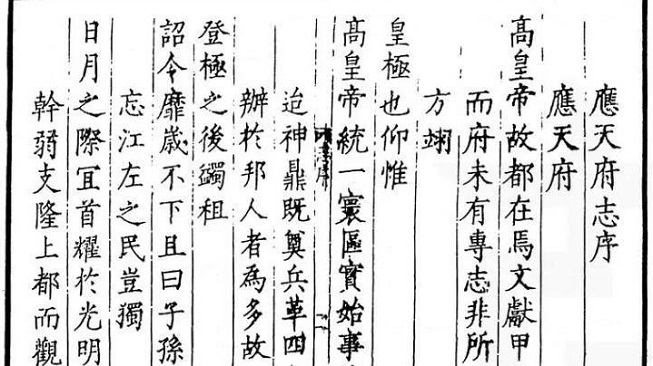 應天府志序
應天府
髙皇帝故都在焉文獻甲
而府未有專志非所
方翊
皇極也仰惟
髙皇帝統一寰區實始事
迨神鼎既奠兵革四
辦於邦人者為多故
登極之後蠲租
詔令靡歲不下且曰子孫
忘江左之民豈獨
日月之際冝首耀於光明
幹弱支隆上都而觀